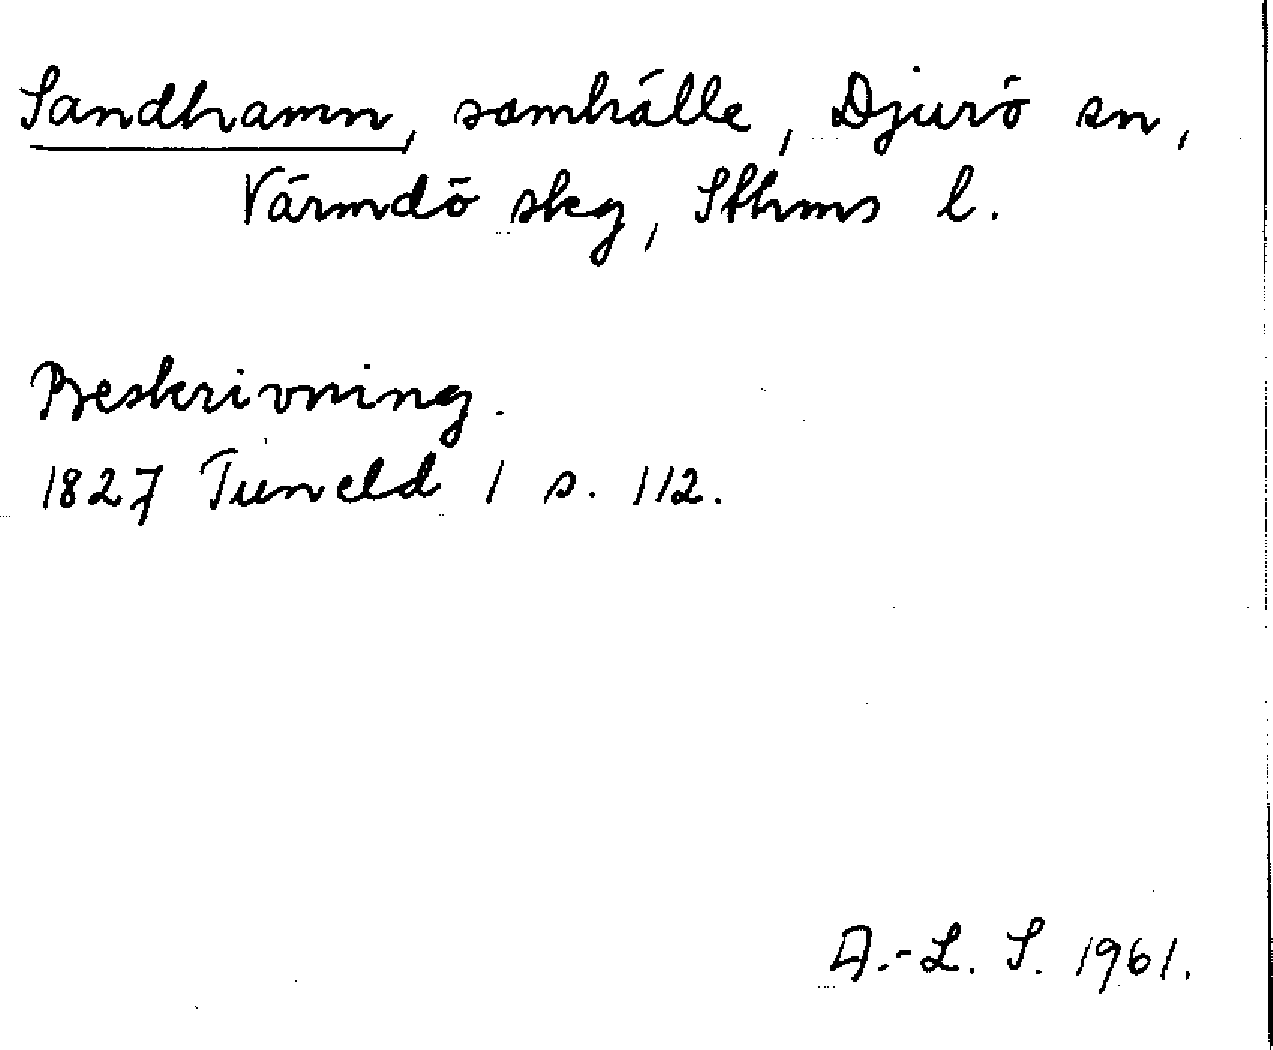 Sandhamn, samhälle, Djurö sn,
Värmdö skg, Sthms l.
Beskrivning.
1827 Tuneld 1 s. 112.
A.-L. S. 1961.